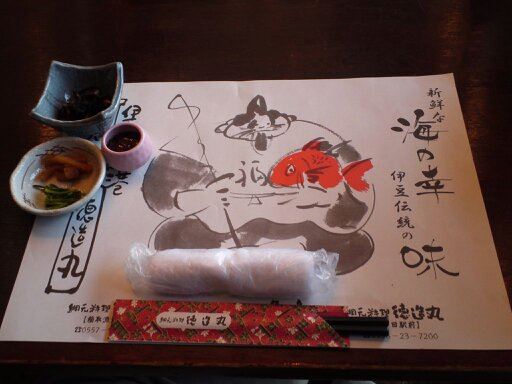 新鮮な
海の幸
伊豆伝統の
味
福
伊
徳造丸
網元料理 徳造丸
☎0557
網元料理 徳造丸
網元料理 徳造丸
田駅前】
-23-7200